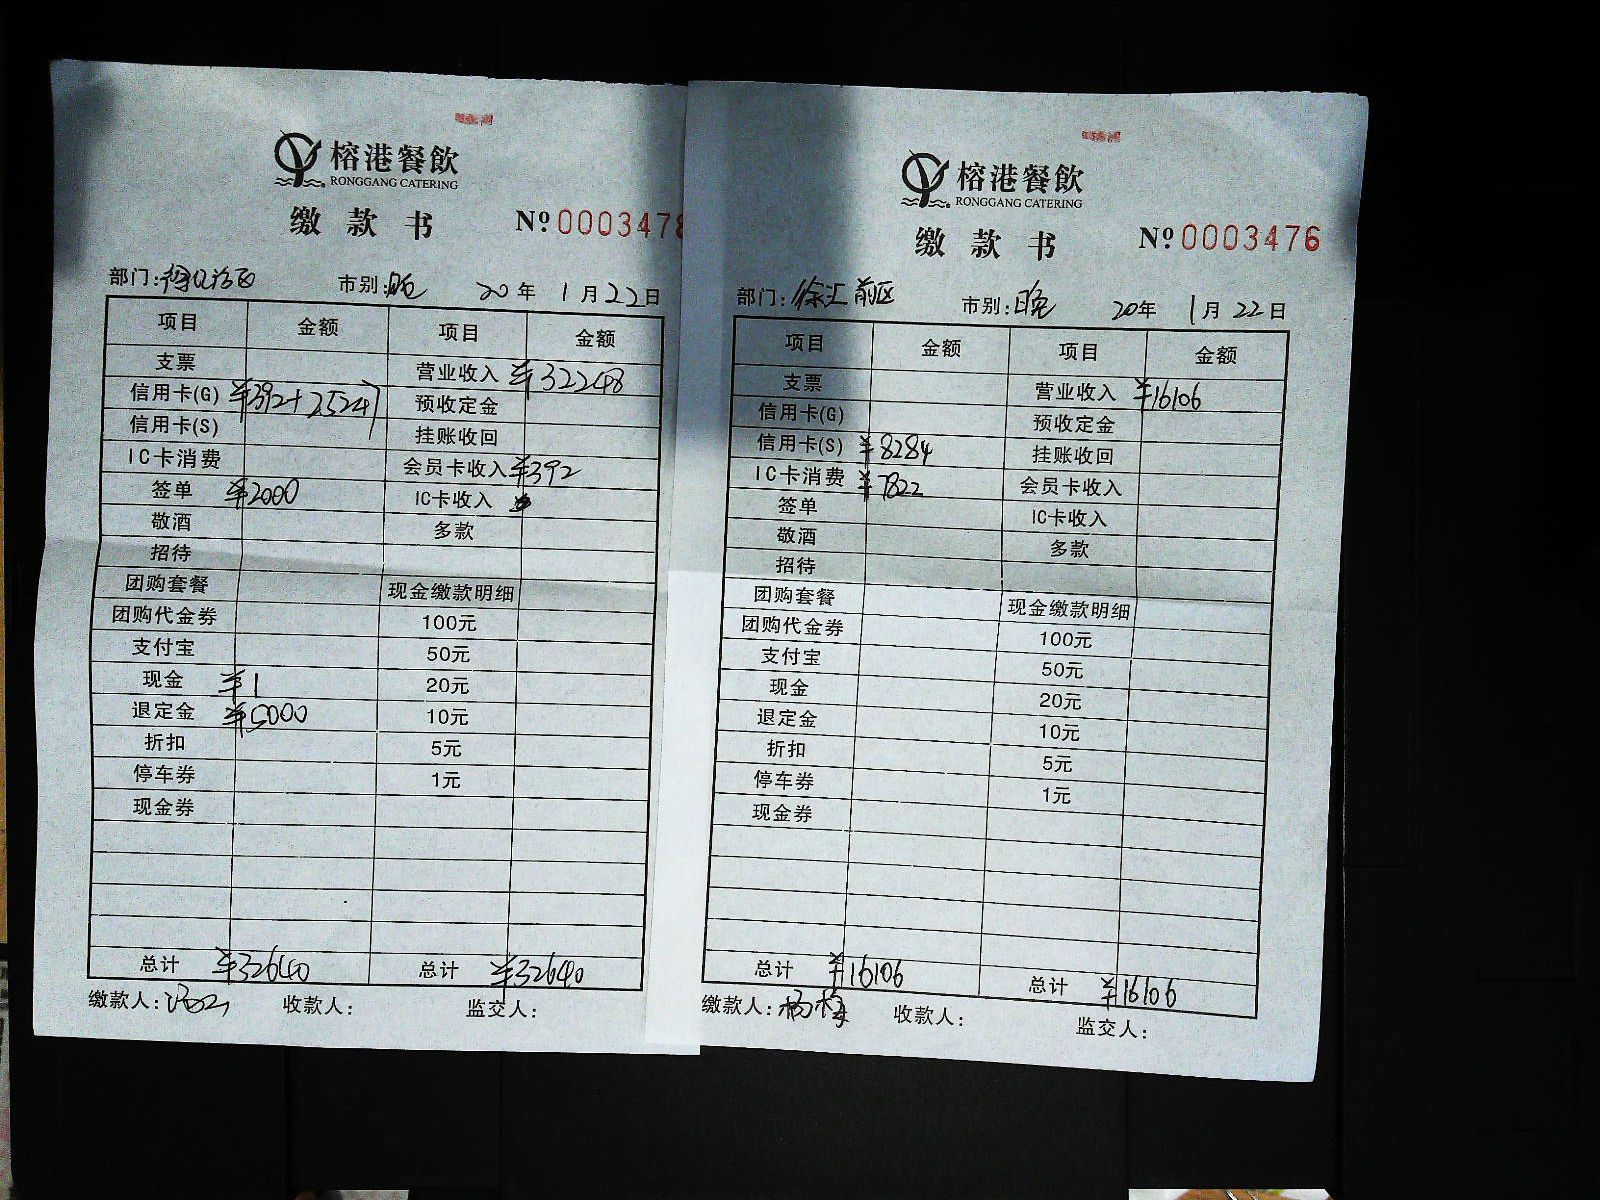 榕港餐飲
RONGGANG CATERING
缴款书 № 0003478
部门: 市别:晚 20年 1月22日
项目 金额 项目 金额
支票 营业收入 ¥32248
信用卡(G) ¥392+25247 预收定金
信用卡(S) 挂账收回
IC卡消费 会员卡收入 ¥392
签单 ¥2000 IC卡收入
敬酒 多款
招待
团购套餐 现金缴款明细
团购代金券 100元
支付宝 50元
现金 ¥1 20元
退定金 ¥5000 10元
折扣 5元
停车券 1元
现金券
总计 ¥32640 总计 ¥32640
缴款人: 收款人: 监交人:
榕港餐飲
RONGGANG CATERING
缴款书 № 0003476
部门:徐汇前区 市别:晚 20年 1月22日
项目 金额 项目 金额
支票 营业收入 ¥16106
信用卡(G) 预收定金
信用卡(S) ¥8284 挂账收回
IC卡消费 ¥7822 会员卡收入
签单 IC卡收入
敬酒 多款
招待
团购套餐 现金缴款明细
团购代金券 100元
支付宝 50元
现金 20元
退定金 10元
折扣 5元
停车券 1元
现金券
总计 ¥16106 总计 ¥16106
缴款人:杨梅 收款人: 监交人: